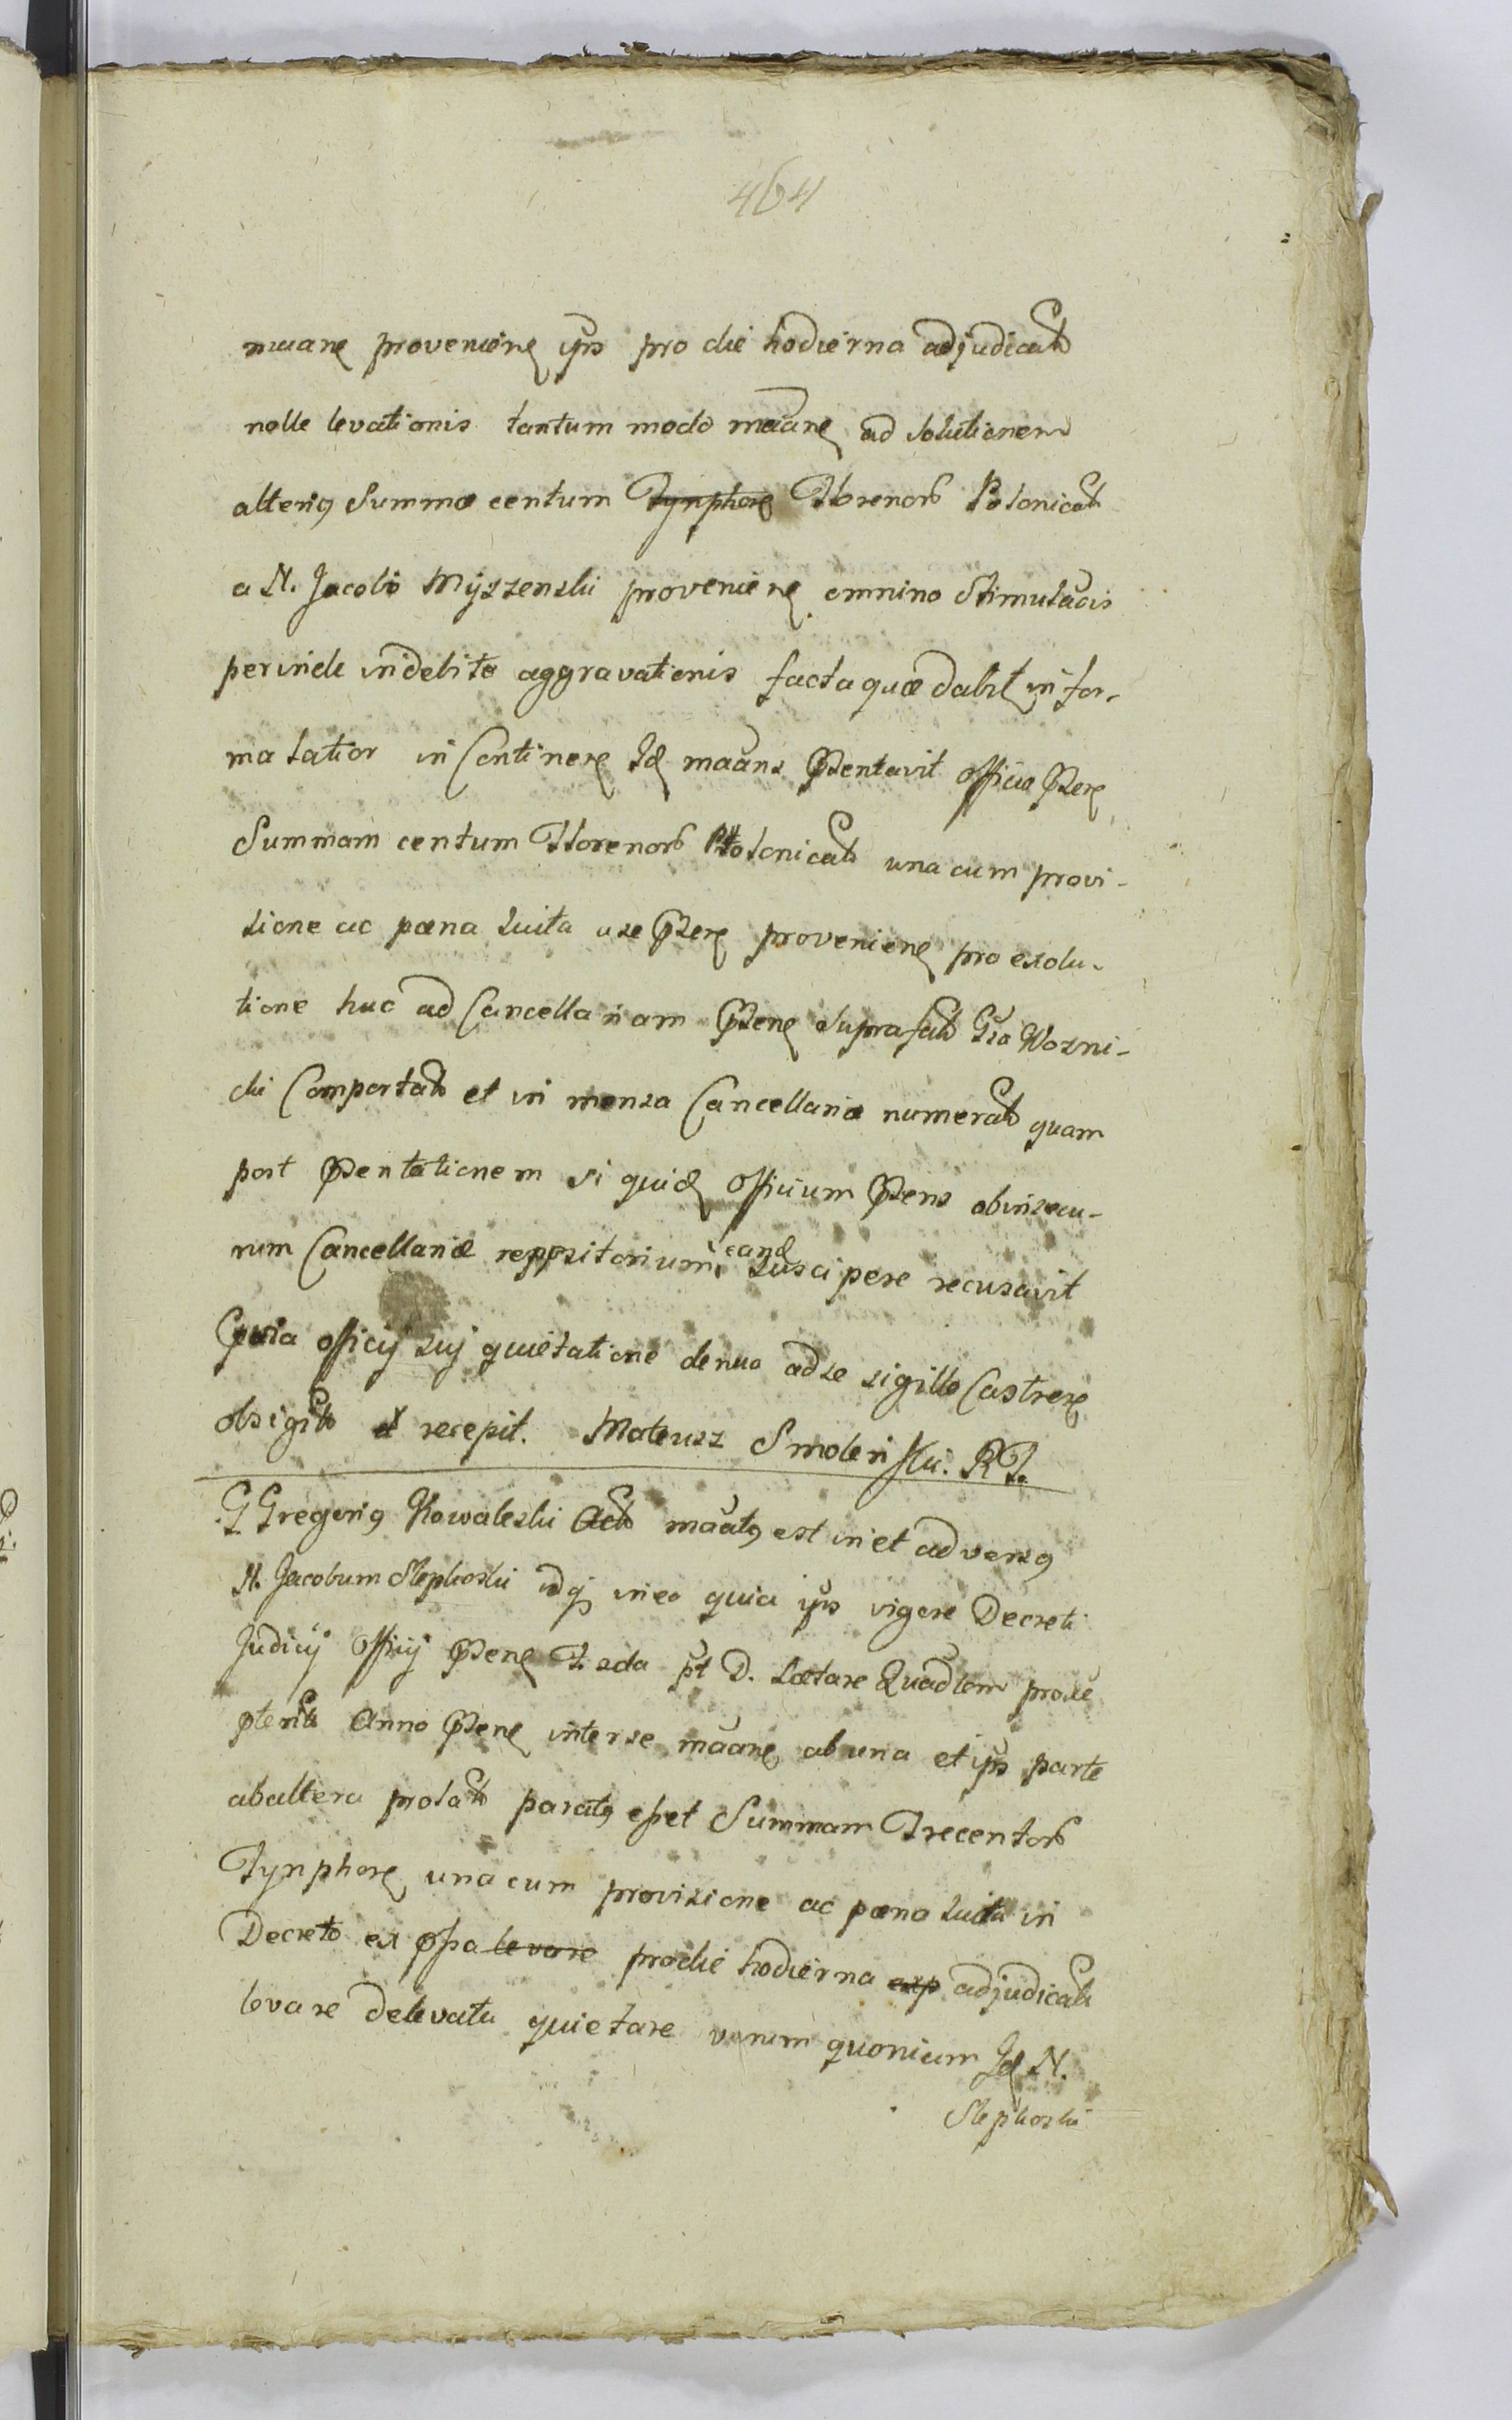 464
provenien ips pro die hodierna adjudicat
nolle levationis tantum modo maan ad solutionem
alterius Summæ centum Tynphor Florenor Polonical
a N. Jacobo Myszenski provenien omnino Stimulaois
perinde indebite aggravationis facta quæ dabit infor-
ma latior in Contineñ Id maans Pntavit officio Pnti
Summam centum Florenor Polonical una cum provi-
sione ac pœna luita a se provenien pro exolu-
tione huc ad Cancellariam Pnem suprafat Gra Wozni-
cki Comportat et in mensa Cancellariæ numerat quam
post Pntationem si quid officium Pns obinsecu-
rum Cancellariæ reppositorium eand suscipere recusavit
officij sui quietatione denuo ad se sigillo Castren
obsigilt et recepit. Mateusz Smolenski. RJ.
G Gregorius Kowaleski Act maatus est in et adversus
N. Jacobum Slepkoski idq in eo quia ips vigore Decreti
Judicij officij Pntis pt D. Lætare Quadlem proxe
pterit Anno Pnti inter se maan ab una et ips parte
ab altera prolat paratus esset Summam Trecentor
Tynphor una cum provisione ac pœna luita in
Decreto exppssa levare pro die hodierna exp adjudicat
levare de levata quietare verum quoniam Id N.
Slepkoski